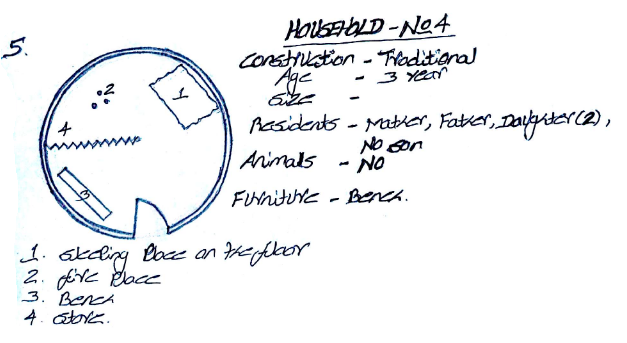 5.
HOUSEHOLD - No 4
Construction - Traditional
Age - 3 year
Size -
Residents - Mather, Father, Daughter (2),
No son
Animals - No
Furniture - Bench.
1
2
4
3
1. Sleeping Place on the floor
2. fire Place
3. Bench
4. Store.